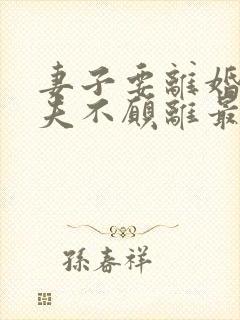 妻子要離婚
夫不願離最
孫春祥